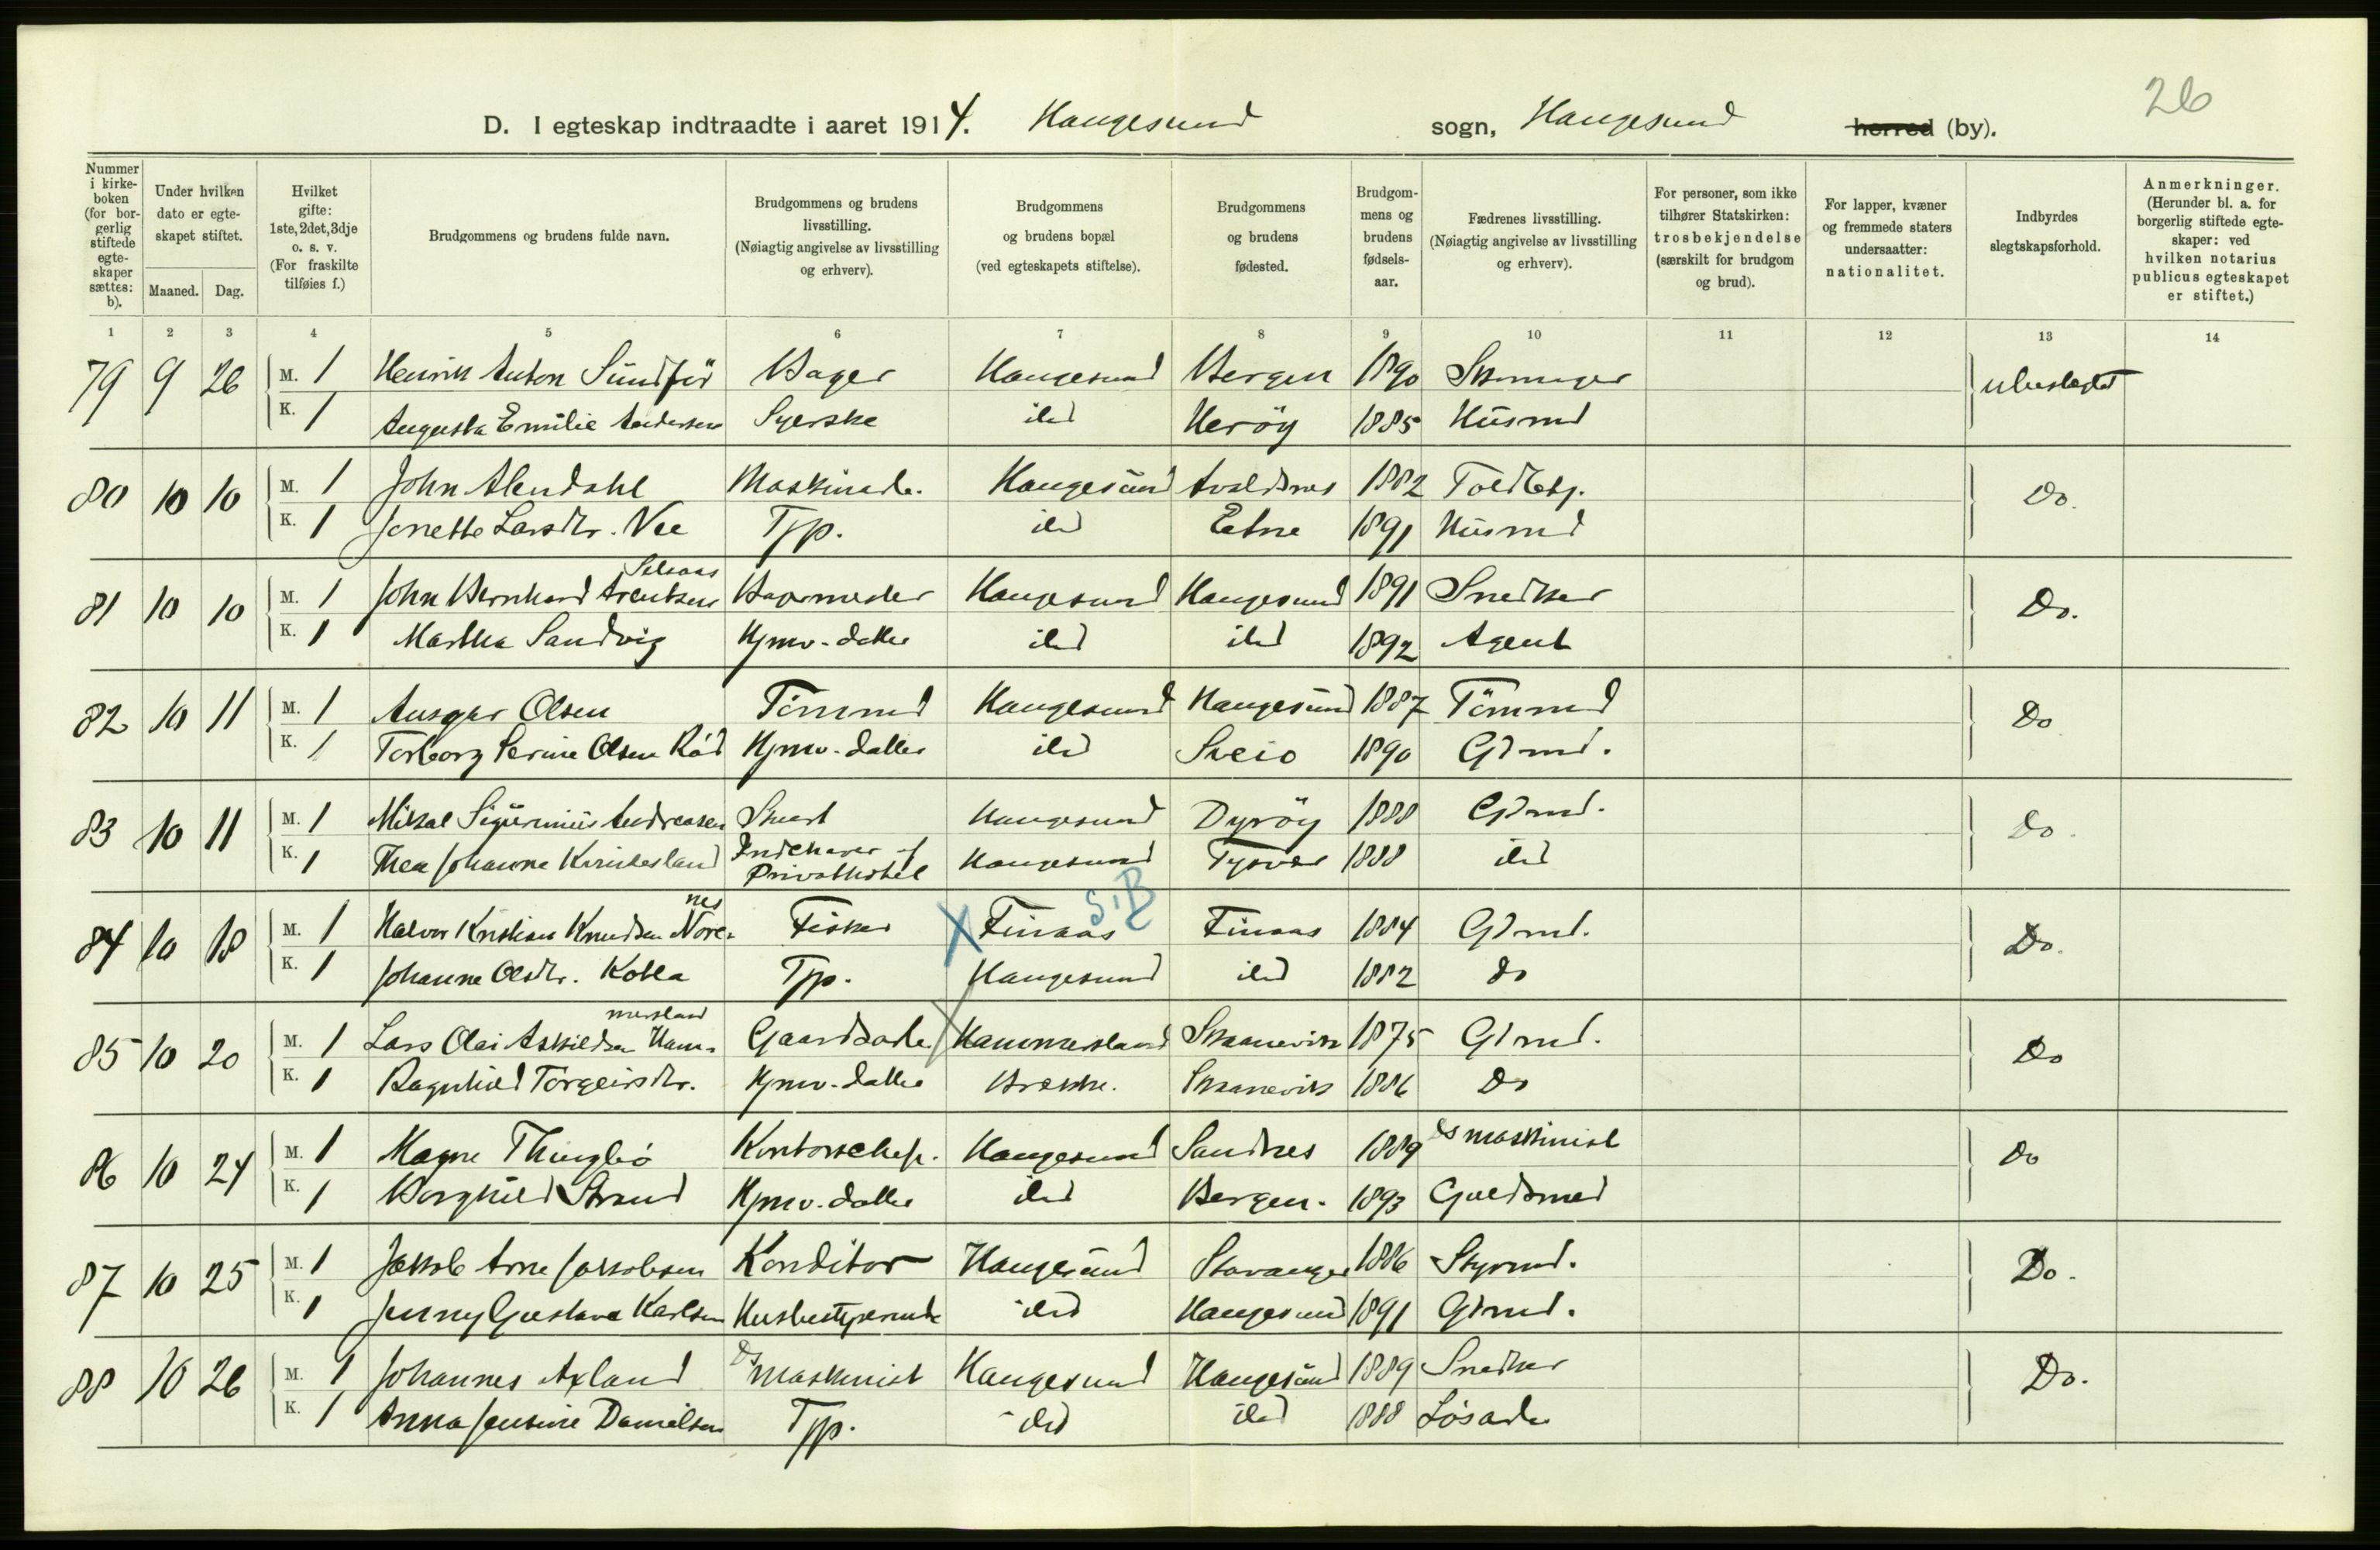 26
D. I egteskap indtraadte i aaret 1914. Haugesund sogn, Haugesund herred (by).
Nummer i kirke-boken (for bor-gerlig stiftede egte-skaper sættes: b).
Under hvilken dato er egte-skapet stiftet.
Maaned. Dag.
Hvilket gifte: 1ste, 2det, 3dje o. s. v. (For fraskilte tilføies f.)
Brudgommens og brudens fulde navn.
Brudgommens og brudens livsstilling. (Nøiagtig angivelse av livsstilling og erhverv).
Brudgommens og brudens bopæl (ved egteskapets stiftelse).
Brudgommens og brudens fødested.
Brudgom-mens og brudens fødsels-aar.
Fædrenes livsstilling. (Nøiagtig angivelse av livsstilling og erhverv).
For personer, som ikke tilhører Statskirken: trosbekjendelse (særskilt for brudgom og brud).
For lapper, kvæner og fremmede staters undersaatter: nationalitet.
Indbyrdes slegtskapsforhold.
Anmerkninger. (Herunder bl. a. for borgerlig stiftede egte-skaper: ved hvilken notarius publicus egteskapet er stiftet.)
1 2 3 4 5 6 7 8 9 10 11 12 13 14
79 9 26 M. 1 Henrik Anton Sundför Bager Haugesund Bergen 1890 Skomager ubeslegtet
K. 1 Augusta Emilie Andersen Syerske ibid Heröy 1885 Husmd
80 10 10 M. 1 John Alendahl Maskinarb. Haugesund Avaldsnes 1882 Toldbetj. Do.
K. 1 Jonette Larsdtr. Vee Tjp. ibid Etne 1891 Husmd
Selsaas
81 10 10 M. 1 John Bernhard Arentsen Bagermester Haugesund Haugesund 1891 Snedker Do.
K. 1 Martha Sandvig Hjmv. datter ibid ibid 1892 Agent
82 10 11 M. 1 Ansgar Olsen Tömmd Haugesund Haugesund 1887 Tömmd Do
K. 1 Torborg Serine Olsen Rød Hjmv. datter ibid Sveio 1890 Gdmd.
83 10 11 M. 1 Mikal Sigurinius Andreasen Stuert Haugesund Dyröy 1888 Gdmd. Do.
K. 1 Thea Johanne Kvinnesland Indehaver af Privathotel Haugesund Tysvær 1888 ibid
nes S.B
84 10 18 M. 1 Halvor Kristian Knudsen Nore- Fisker X Finaas Finaas 1884 Gdmd. Do.
K. 1 Johanne Olsdtr. Kolla Tjp. Haugesund ibid 1882 do
mersland
85 10 20 M. 1 Lars Olai Askildsen Ham- Gaardsarb. X Hammersland Skaanevik 1875 Gdmd. Do
K. 1 Ragnhild Torgeirsdtr. Hjmv. datter Brække. Skaanevik 1886 Do
86 10 24 M. 1 Magne Thingbø Kontorchef. Haugesund Sandnes 1889 Ds maskinist Do
K. 1 Borghild Strand Hjmv. datter ibid Bergen. 1893 Guldsmed
87 10 25 M. 1 Jakob Arne Jakobsen Konditor Haugesund Stavanger 1886 Styrmd. Do.
K. 1 Jenny Gustava Karlsen Husbestyrerinde ibid Haugesund 1891 Gdmd.
88 10 26 M. 1 Johannes Axland Ds maskinist Haugesund Haugesund 1889 Snedker Do.
K. 1 Anna Jensine Danielsen Tjp. ibid ibid 1888 Løsarb.